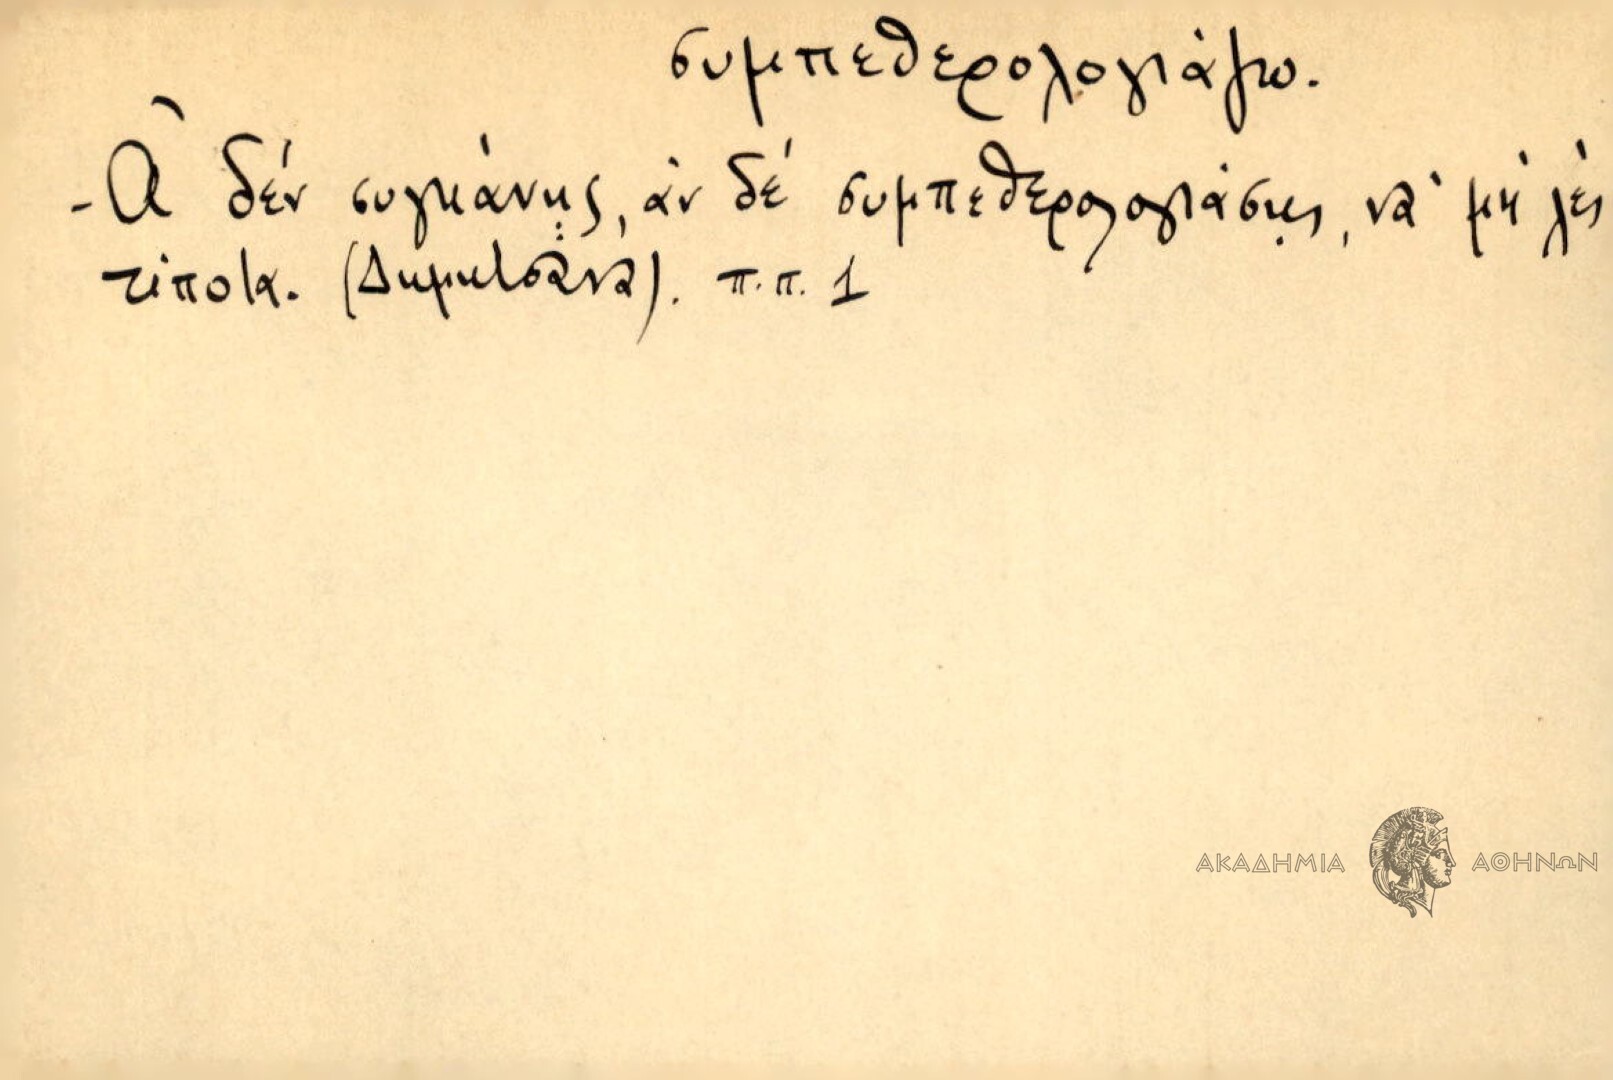 συμπεθερολογιάζω.
- Ἂ δέν συγγιάνῃς, ἀν δέ συμπεθερολογιάσῃς, νὰ μή λές
τίποτα. (Δημητσάνα). π.π. 1
ΑΚΑΔΗΜΙΑ ΑΘΗΝΩΝ